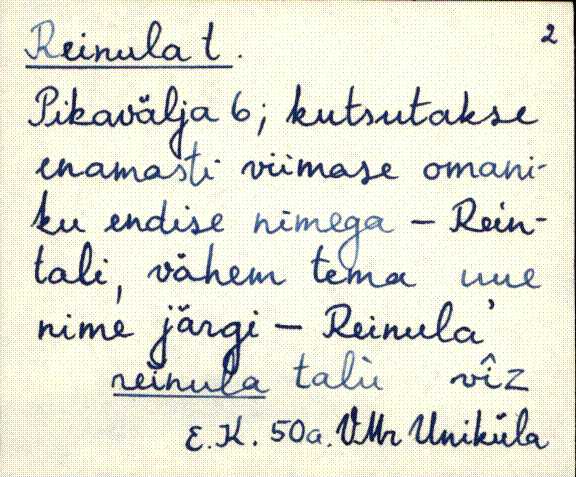 Reinula t. 2
Pikavälja 6; kutsutakse
enamasti viimase omani-
ku endise nimega – Rein-
tali, vähem tema uue
nime järgi – Reinula'
reinula talù vîz
E.K. 50a. VMr Uniküla